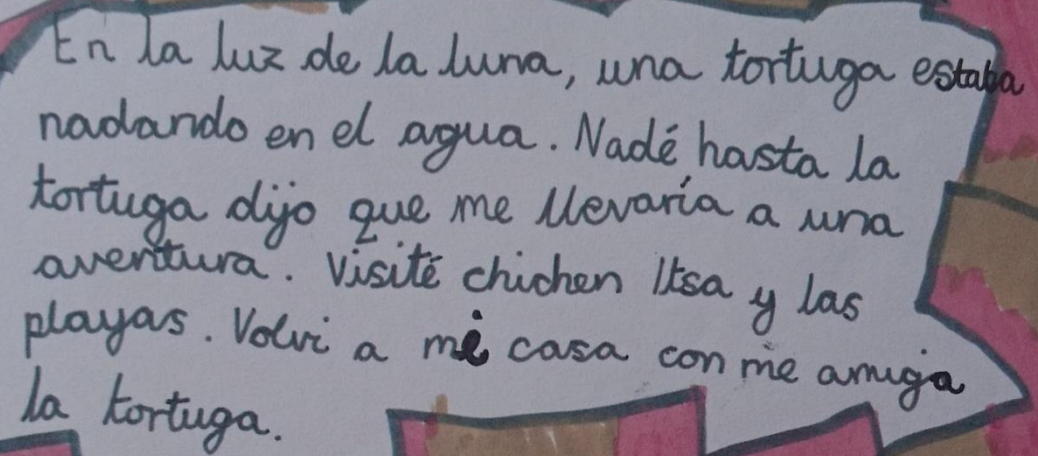 En la luz de la luna, una tortuga estaba
nadando en el agua. Nadé hasta la
tortuga dijo que me llevaría a una
aventura. Visité chichen Itsa y las
playas. Volvi a mi casa con me amiga
la tortuga.